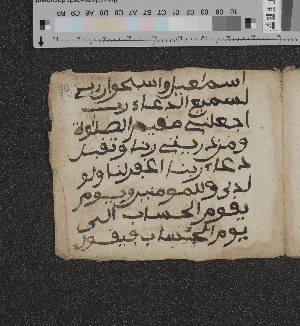 اسماعيل واسحو ان ربي
لسميع الدعاء رب
اجعلني مقيم الصلوة
ومن ذريتي ربنا وتقبل
دعاء ربنا اغفر لنا ولو
لدي وللمومنين ويوم
يقوم الحساب الى
يوم الحساب فيقول